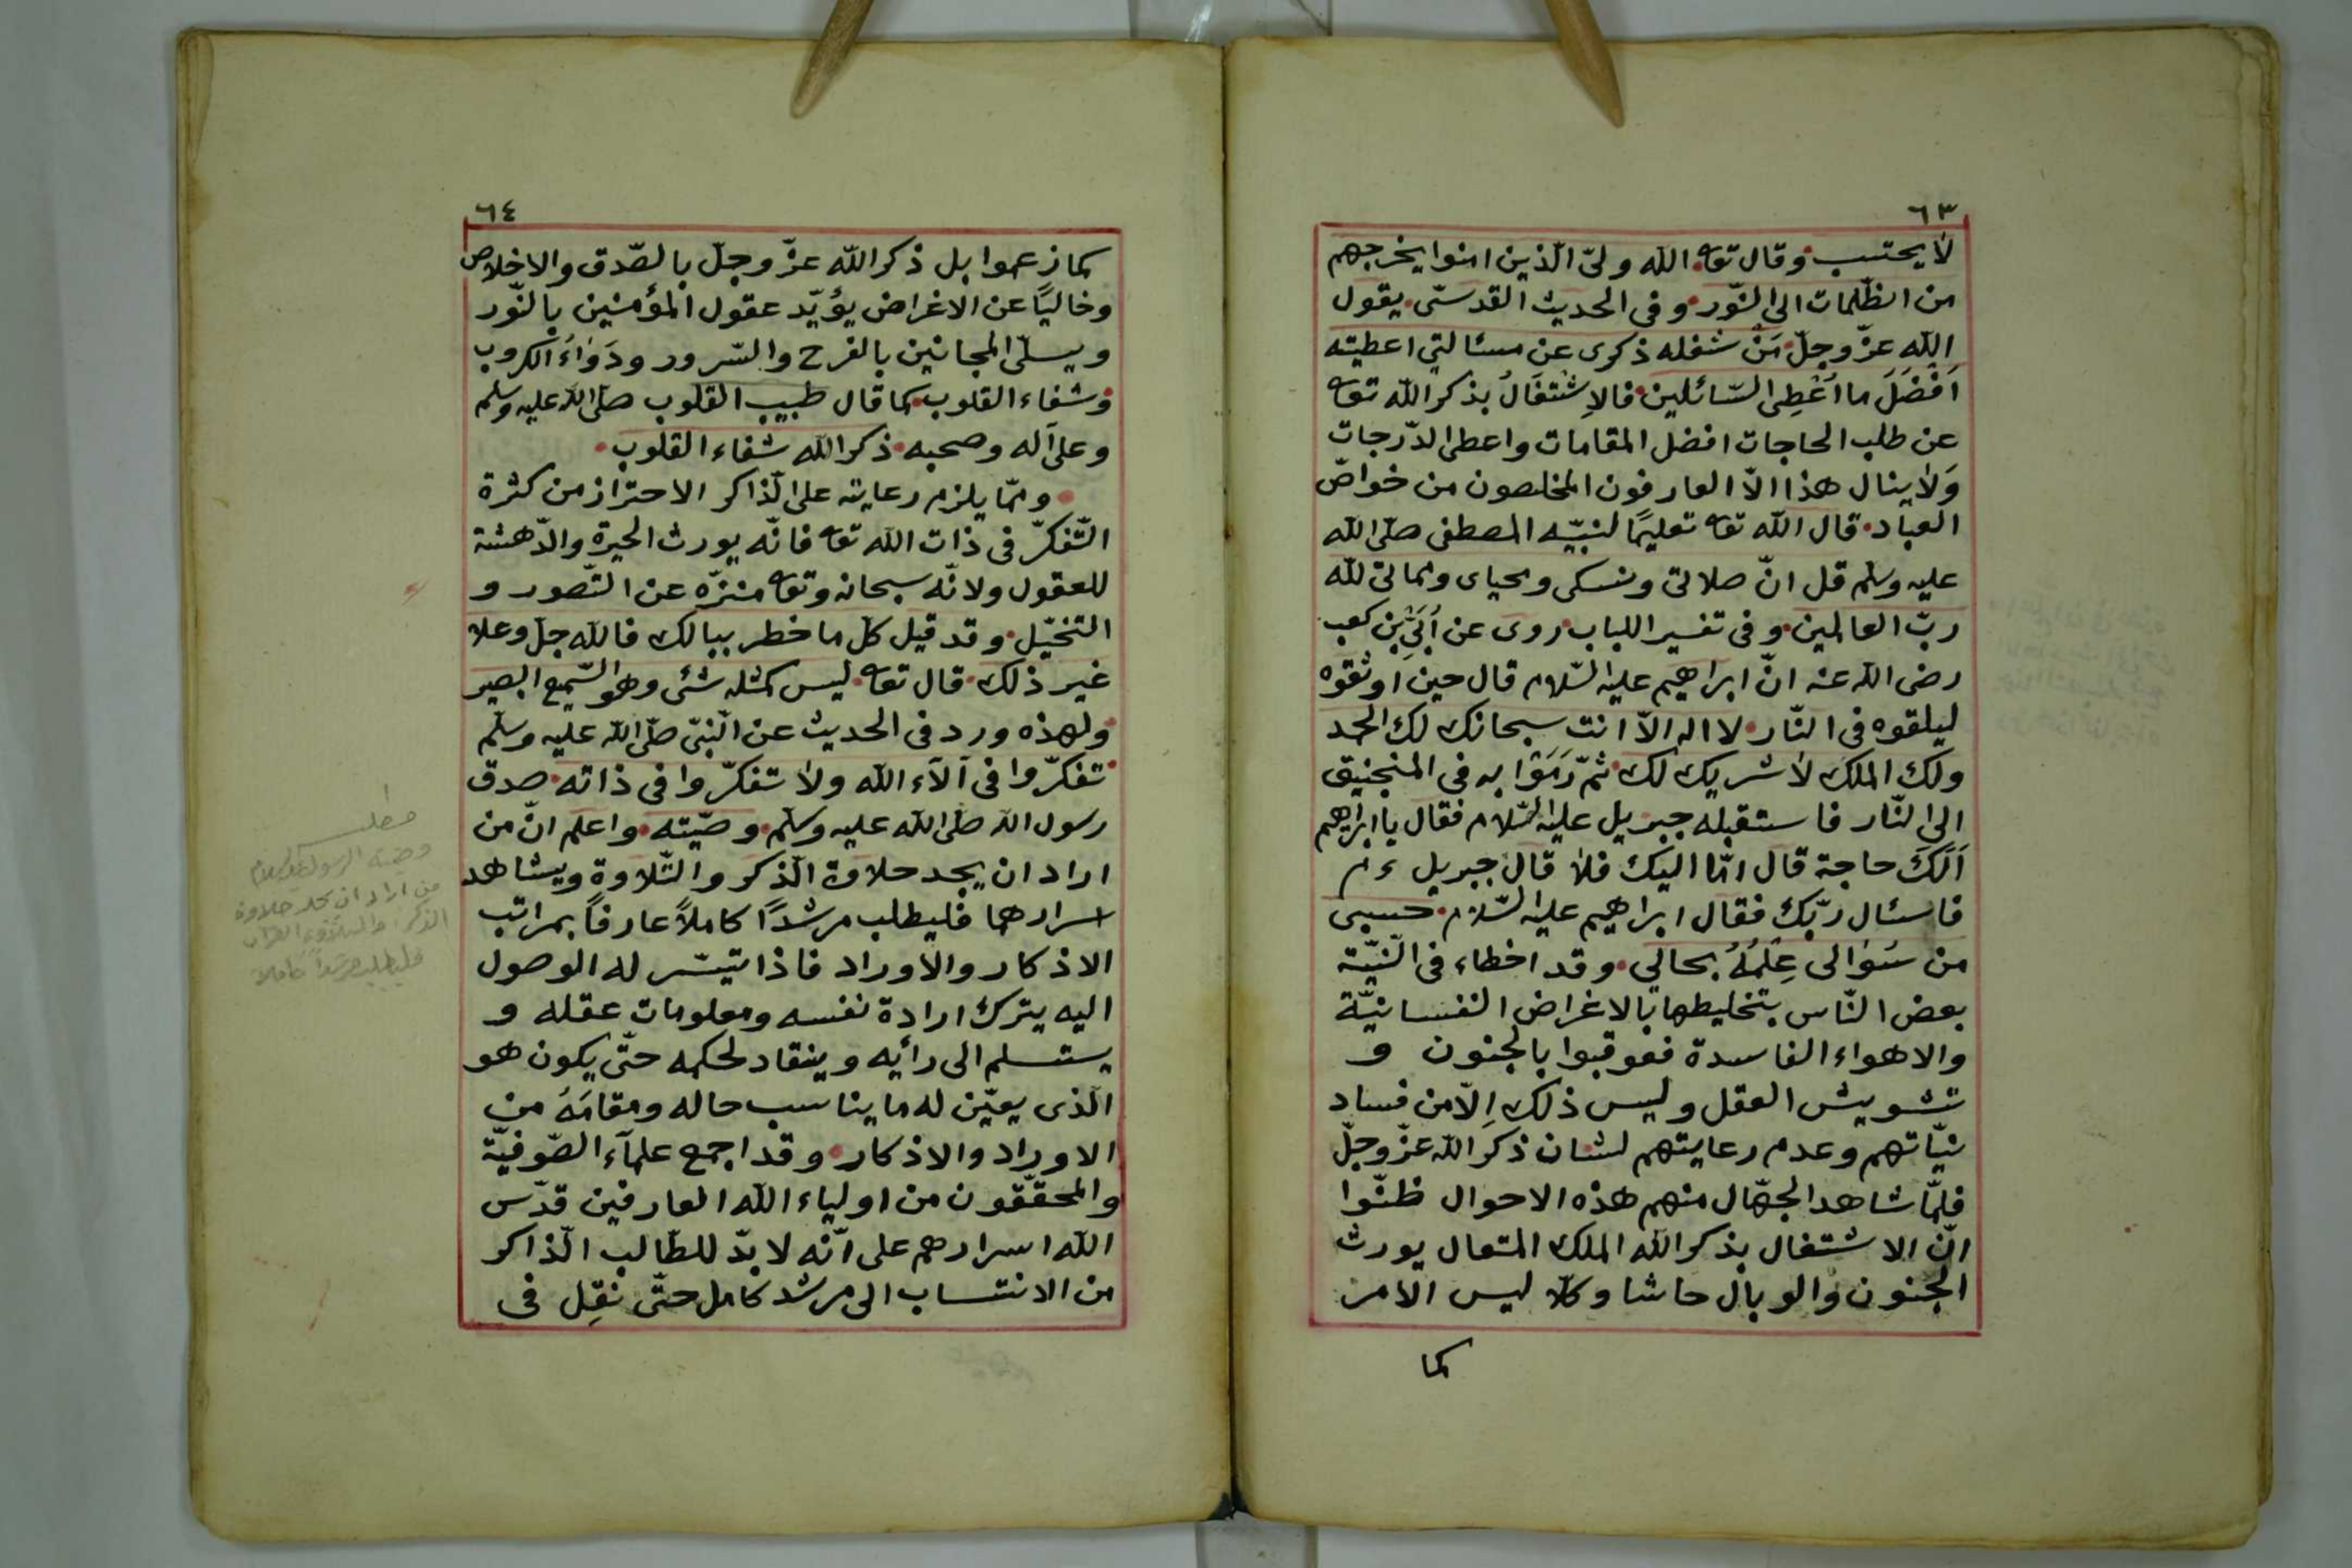 ٦٣
لا يحتسب وقال تعا الله ولىّ الّذين امنوا يخرجهم
من الظّلمات الى النّور وفى الحديث القدسىّ يقول
الله عزّ وجلّ مَنْ شغله ذكرى عن مسئالتى اعطيته
اَفْضَلَ ما اُعْطِى السّائلين فالاِشْتغَالُ بذكر الله تعا
عن طلب الحاجات افضل المقامات واعطى الدّرجات
وَلا ينال هذا الّا العارفون المخلصون من خواصّ
العباد قال الله تعا تعليمًا لنبيّه المصطفى صلّى الله
عليه وسلم قل انّ صلاتى ونسكى ومحياى ومماتى لله
ربّ العالمين وفى تفسير اللباب روى عن اُبَىِّ بْنِ كعب
رضى الله عنه انّ ابراهيم عليه السّلام قال حين اوثقوه
ليلقوه فى النّار لا اله الّا انت سبحانك لك الحمد
ولك الملك لا شريك لك ثمّ رَمَوْا به فى المنجنيق
الى النّار فاستقبله جبريل عليه السّلام فقال يا ابراهيم
اَلَكَ حاجة قال امّا اليك فلا قال جبريل ءم
فاسئال ربّك فقال ابراهيم عليه السّلام حسبى
من سُؤالى عِلْمُهُ بحالى وقد اخطاء فى النّيّة
بعض النّاس بتخليطها بالاغراض النفسانيّة
والاهواء الفاسدة فعوقبوا بالجنون و
تشويش العقل وليس ذلك اِلّا من فساد
نيّاتهم وعدم رعايتهم لشان ذكر الله عزّ وجلّ
فلمّا شاهد الجهّال منهم هذه الاحوال ظنّوا
انّ الاشتغال بذكر الله الملك المتعال يورث
الجنون والوبال حاشا وكلّا ليس الامر
كما
٦٤
كما زعموا بل ذكر الله عزّ وجلّ بالصّدق والاخلاص
وخاليًا عن الاغراض يؤيّد عقول المؤمنين بالنّور
ويسلّى المجانين بالفرح والسّرور ودَوَاءُ الكروب
وشفاء القلوب كما قال طبيب القلوب صلى الله عليه وسلم
وعلى آله وصحبه ذكر الله شفاء القلوب
وممّا يلزم رعايته على الذّاكر الاحتراز من كثرة
التّفكّر فى ذات الله تعا فانّه يورث الحيرة والدّهشة
للعقول ولانّه سبحانه وتعا منزّه عن التّصور و
التخيّل وقد قيل كلّ ما خطر ببالك فالله جلّ وعلا
غير ذلك قال تعا ليس كمثله شئى وهو السّميع البصير
ولهذه ورد فى الحديث عن النّبىّ صلّى الله عليه وسلّم
تفكّروا فى آلآء الله ولا تفكّروا فى ذاته صدق
رسول الله صلى الله عليه وسلم وصيّته واعلم انّ من
اراد ان يجد حلاوة الذّكر والتّلاوة ويشاهد
اسرارهما فليطلب مرشدًا كاملاً عارفًا بمراتب
الاذكار والاوراد فاذا تيسّر له الوصول
اليه يترك ارادة نفسه ومعلومات عقله و
يستسلم الى رأيه وينقاد لحكمه حتّى يكون هو
الّذى يعيّن له ما يناسب حاله ومقامَهُ من
الاوراد والاذكار وقد اجمع علمآء الصّوفيّة
والمحقّقون من اولياء الله العارفين قدّس
الله اسرارهم على انّه لا بدّ للطّالب الذّاكر
من الانتساب الى مرشد كامل حتّى نقِل فى
مطلب
وصية الرسول
من اراد ان يجد حلاوة
الذكر
فليطلب مرشدا كاملا